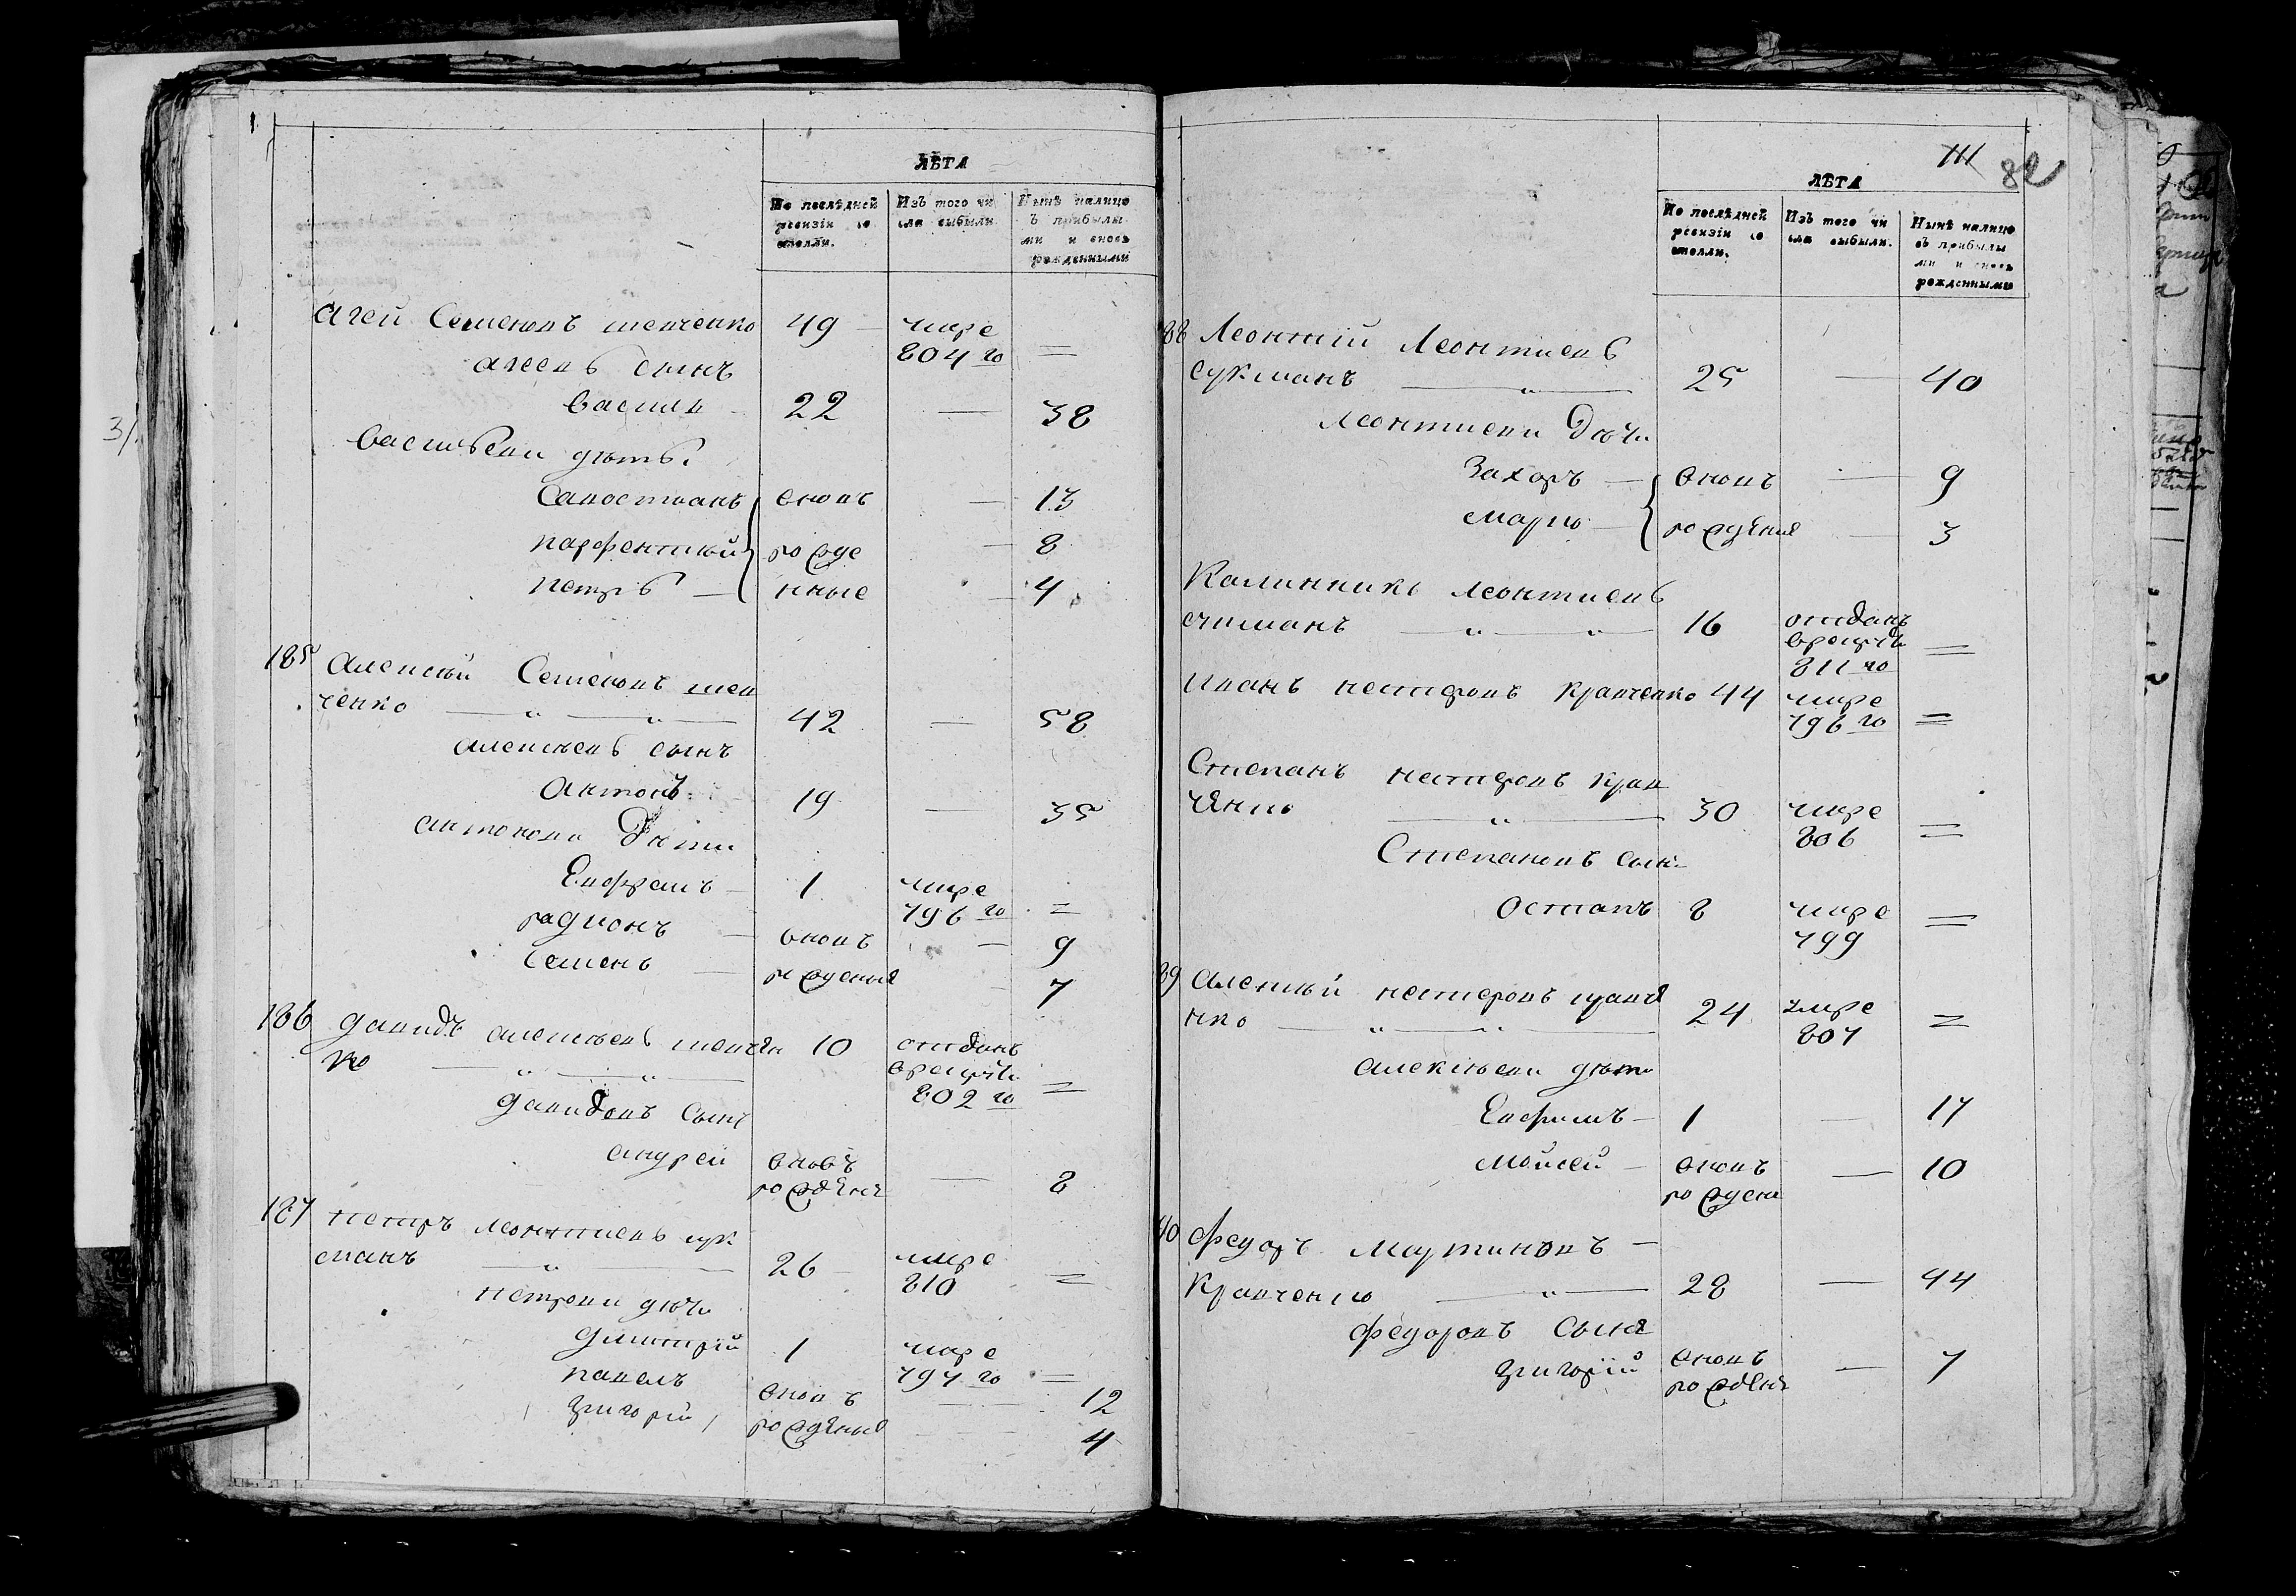 ЛѢТА
По послѣдней ревизіи состояли.
Изъ того числа выбыли
Нынѣ налицо съ прибылыми и вновь рожденными
Агей Семеновъ шевченко 49 — умре 804 го =
агеевъ сынъ
Василь 22 — 38
васильеви дѣти
Савостьянъ вновь — 13
парфентий рожде — 8
петръ — нные — 4
185 Алексѣй Семеновъ шев
ченко — " — " — 42 — 58
алексѣевъ сынъ
Антонъ 19 — 35
антонови Дѣти
Евфремъ — 1 умре 796 го =
радионъ — вновь — 9
Семенъ — рожденые — 7
186 давидъ алексѣевъ шевчен 10 отданъ
ко — " — " — врекруты 802 го =
давидовъ Сынъ
андрей вновь рожденые — 8
187 петръ леонтиевъ сук
манъ — " — 26 — умре 810 =
петрови дѣти
дмитрій 1 умре 797 го =
павелъ вновъ — 12
григорій рожденые — 4
111 82
ЛѢТА
По послѣдней ревизіи состояли.
Изъ того числа выбыли.
Нынѣ налицо съ прибылыми и вновь рожденными
88 Леонтій Леонтиевъ
сукманъ — " — 25 — 40
леонтиеви Дѣти
Захаръ — вновъ — 9
марко — рожденые — 3
Калинникъ леонтиевъ
сукманъ — " — " — 16 отданъ врекруты 811 го =
Иванъ нестеровъ кравченко 44 умре 796 го =
Степанъ нестеровъ крав
ченко — " — 30 умре 806 =
Степановъ сынъ
остапъ 8 умре 799 =
89 алексѣй нестеровъ кравче
нко — " — " — 24 умре 807 =
алексѣеви дѣти
Евфимъ — 1 — 17
мойсей — вновъ рожден — 10
90 федоръ мартиновъ —
Кравченко — " — 28 — 44
федоровъ Сынъ
григорій вновъ рожден — 7